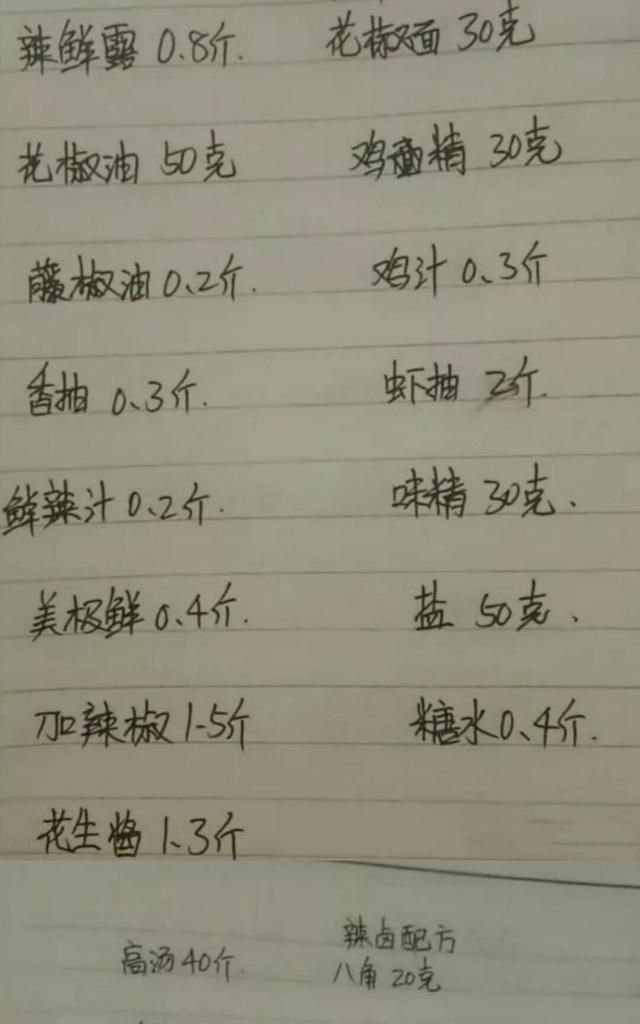 辣鲜露 0.8斤. 花椒面 30克
花椒油 50克 鸡精 30克
藤椒油 0.2斤. 鸡汁 0.3斤
香抽 0.3斤. 虾抽 2斤.
鲜辣汁 0.2斤. 味精 30克.
美极鲜 0.4斤. 盐 50克、
加辣椒 1-5斤 糖水 0.4斤.
花生酱 1.3斤
辣卤配方
高汤 40斤. 八角 20克